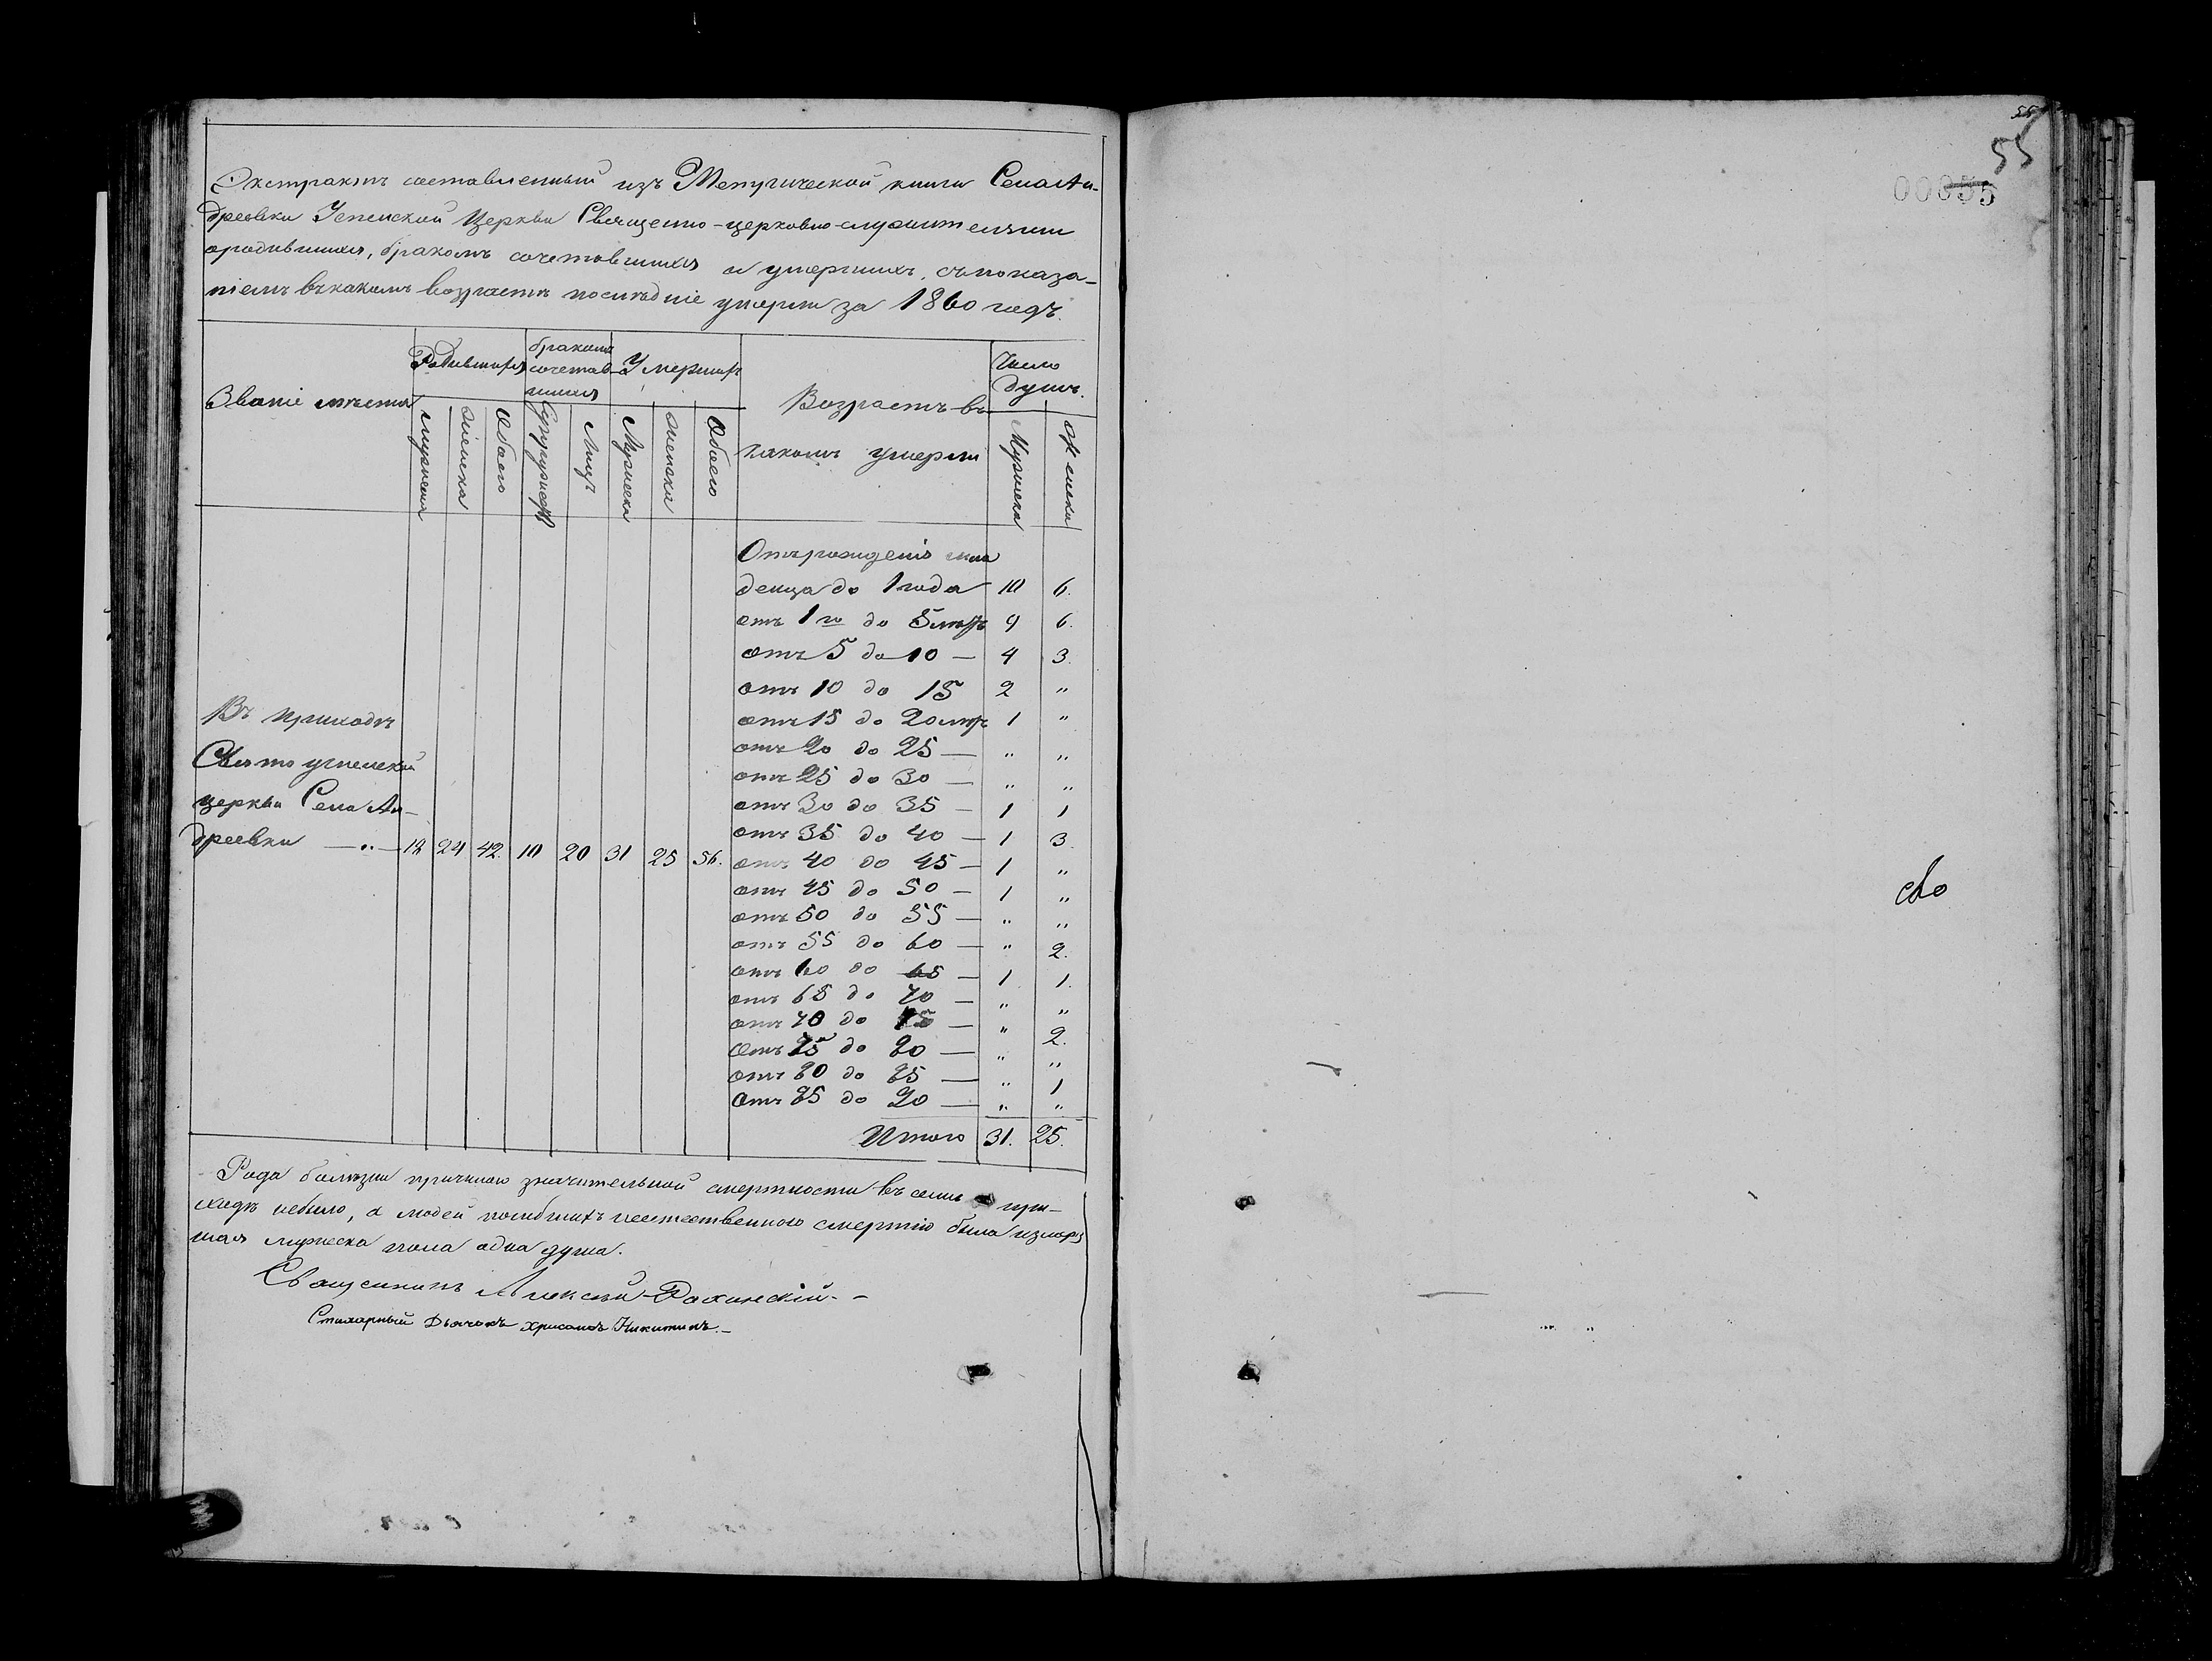 Экстрактъ составленный изъ Метрической книги Села Ан-
дреевки Успенской Церкви Священно-церковно-служителями
ородившихся, бракомъ сочетавшихся и умершихъ, съ показа-
ніемъ въ какомъ возрастѣ послѣдніе умерли за 1860 годъ.
Званіе мѣста
Родившихся
бракомъ
сочетав-
шихся
Умершихъ
Возрастъ въ
какомъ умерли
Число
душъ.
мужеска
женска
Обоего
Супружествъ
Лицъ
Мужеска
женска
Обоего
Мужеска
Женска
Отъ рожденія мла
денца до 1 года 10 6.
отъ 1 го до 5 лѣтъ 9 6.
отъ 5 до 10 — 4 3.
отъ 10 до 15 2 "
отъ 15 до 20 лѣтъ 1 "
отъ 20 до 25 — " "
отъ 25 до 30 — " "
отъ 30 до 35 — 1 1
отъ 35 до 40 — 1 3.
отъ 40 до 45 — 1 "
отъ 45 до 50 — 1 "
отъ 50 до 55 — " "
отъ 55 до 60 — " 2.
отъ 60 до 65 — 1 1.
отъ 65 до 70 — " "
отъ 70 до 75 — " 2.
отъ 75 до 80 — " "
отъ 80 до 85 — " 1
отъ 85 до 90 — " "
Итого 31. 25.
Въ приходѣ
Свято успенской
церкви Села Ан-
дреевки — " — 18 24 42. 10 20 31 25 56.
Рода болѣзни причиною значительной смертности въ семъ при-
ходѣ небыло, а людей погибшихъ неестественною смертію была
мужеска пола одна душа.
Священникъ Алексѣй
Стихарный Дьячокъ Хрисанфъ Никитинъ. —
55
55
00055